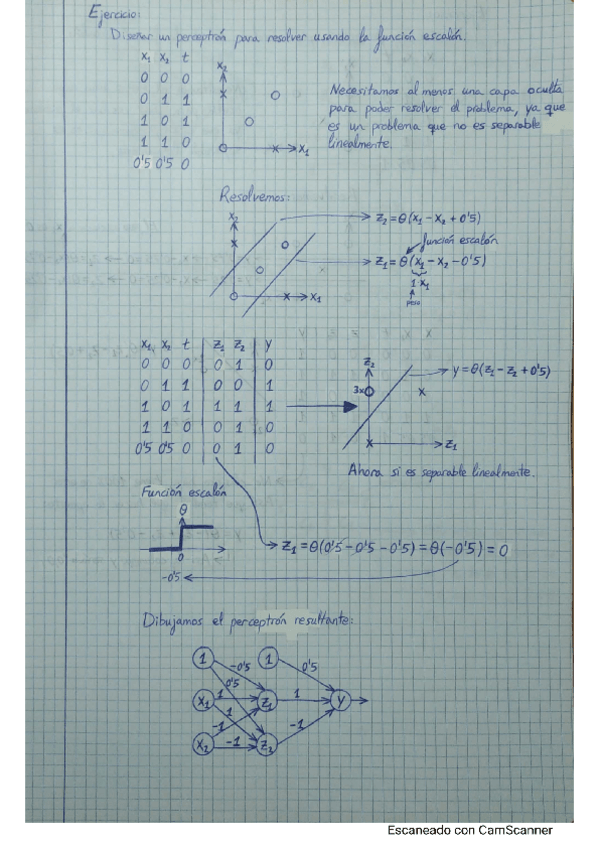 Ejercicio:
Diseñar un perceptrón para resolver usando la función escalón.
X₁ X₂ t
0 0 0
0 1 1
1 0 1
1 1 0
0'5 0'5 0
X₂
X
X X₁
Necesitamos al menos una capa oculta
para poder resolver el problema, ya que
es un problema que no es separable
linealmente.
Resolvemos:
X₂
Z₂=θ(X₁-X₂+0'5)
función escalón
Z₁=θ(X₁-X₂-0'5)
1·X₁
peso
X₁
X₁ X₂ t Z₁ Z₂ Y
0 0 0 0 1 0
0 1 1 0 0 1
1 0 1 1 1 1
1 1 0 0 1 0
0'5 0'5 0 0 1 0
Z₂
y=θ(Z₁-Z₂+0'5)
3x
X
X
Z₁
Ahora si es separable linealmente.
Función escalón
θ
0
-0'5
Z₁=θ(0'5-0'5-0'5)=θ(-0'5)=0
Dibujamos el perceptrón resultante:
1 -0'5 1 0'5
0'5
X₁ 1 Z₁ 1 Y
1
-1 -1
X₂ -1 Z₂
Escaneado con CamScanner